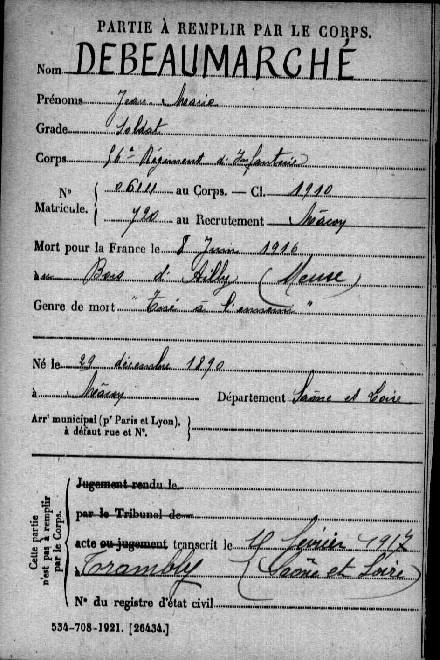 PARTIE À REMPLIR PAR LE CORPS.
Nom DEBEAUMARCHÉ
Prénoms Jean Marie
Grade Soldat
Corps 56e Régiment d'Infanterie
N° Matricule. { au Corps. — Cl. 1910
720 au Recrutement Mâcon
Mort pour la France le 8 Juin 1916
au Bois d'Ailly (Meuse)
Genre de mort "Tué à l'ennemi"
Né le 29 décembre 1890
à Mâcon Département Saône et Loire
Arrt municipal (pr Paris et Lyon),
à défaut rue et N°.
Cette partie n'est pas à remplir par le Corps.
Jugement rendu le
par le Tribunal de
acte ou jugement transcrit le février 1917
à Trambly (Saône et Loire)
N° du registre d'état civil
534-708-1921. [26434.]